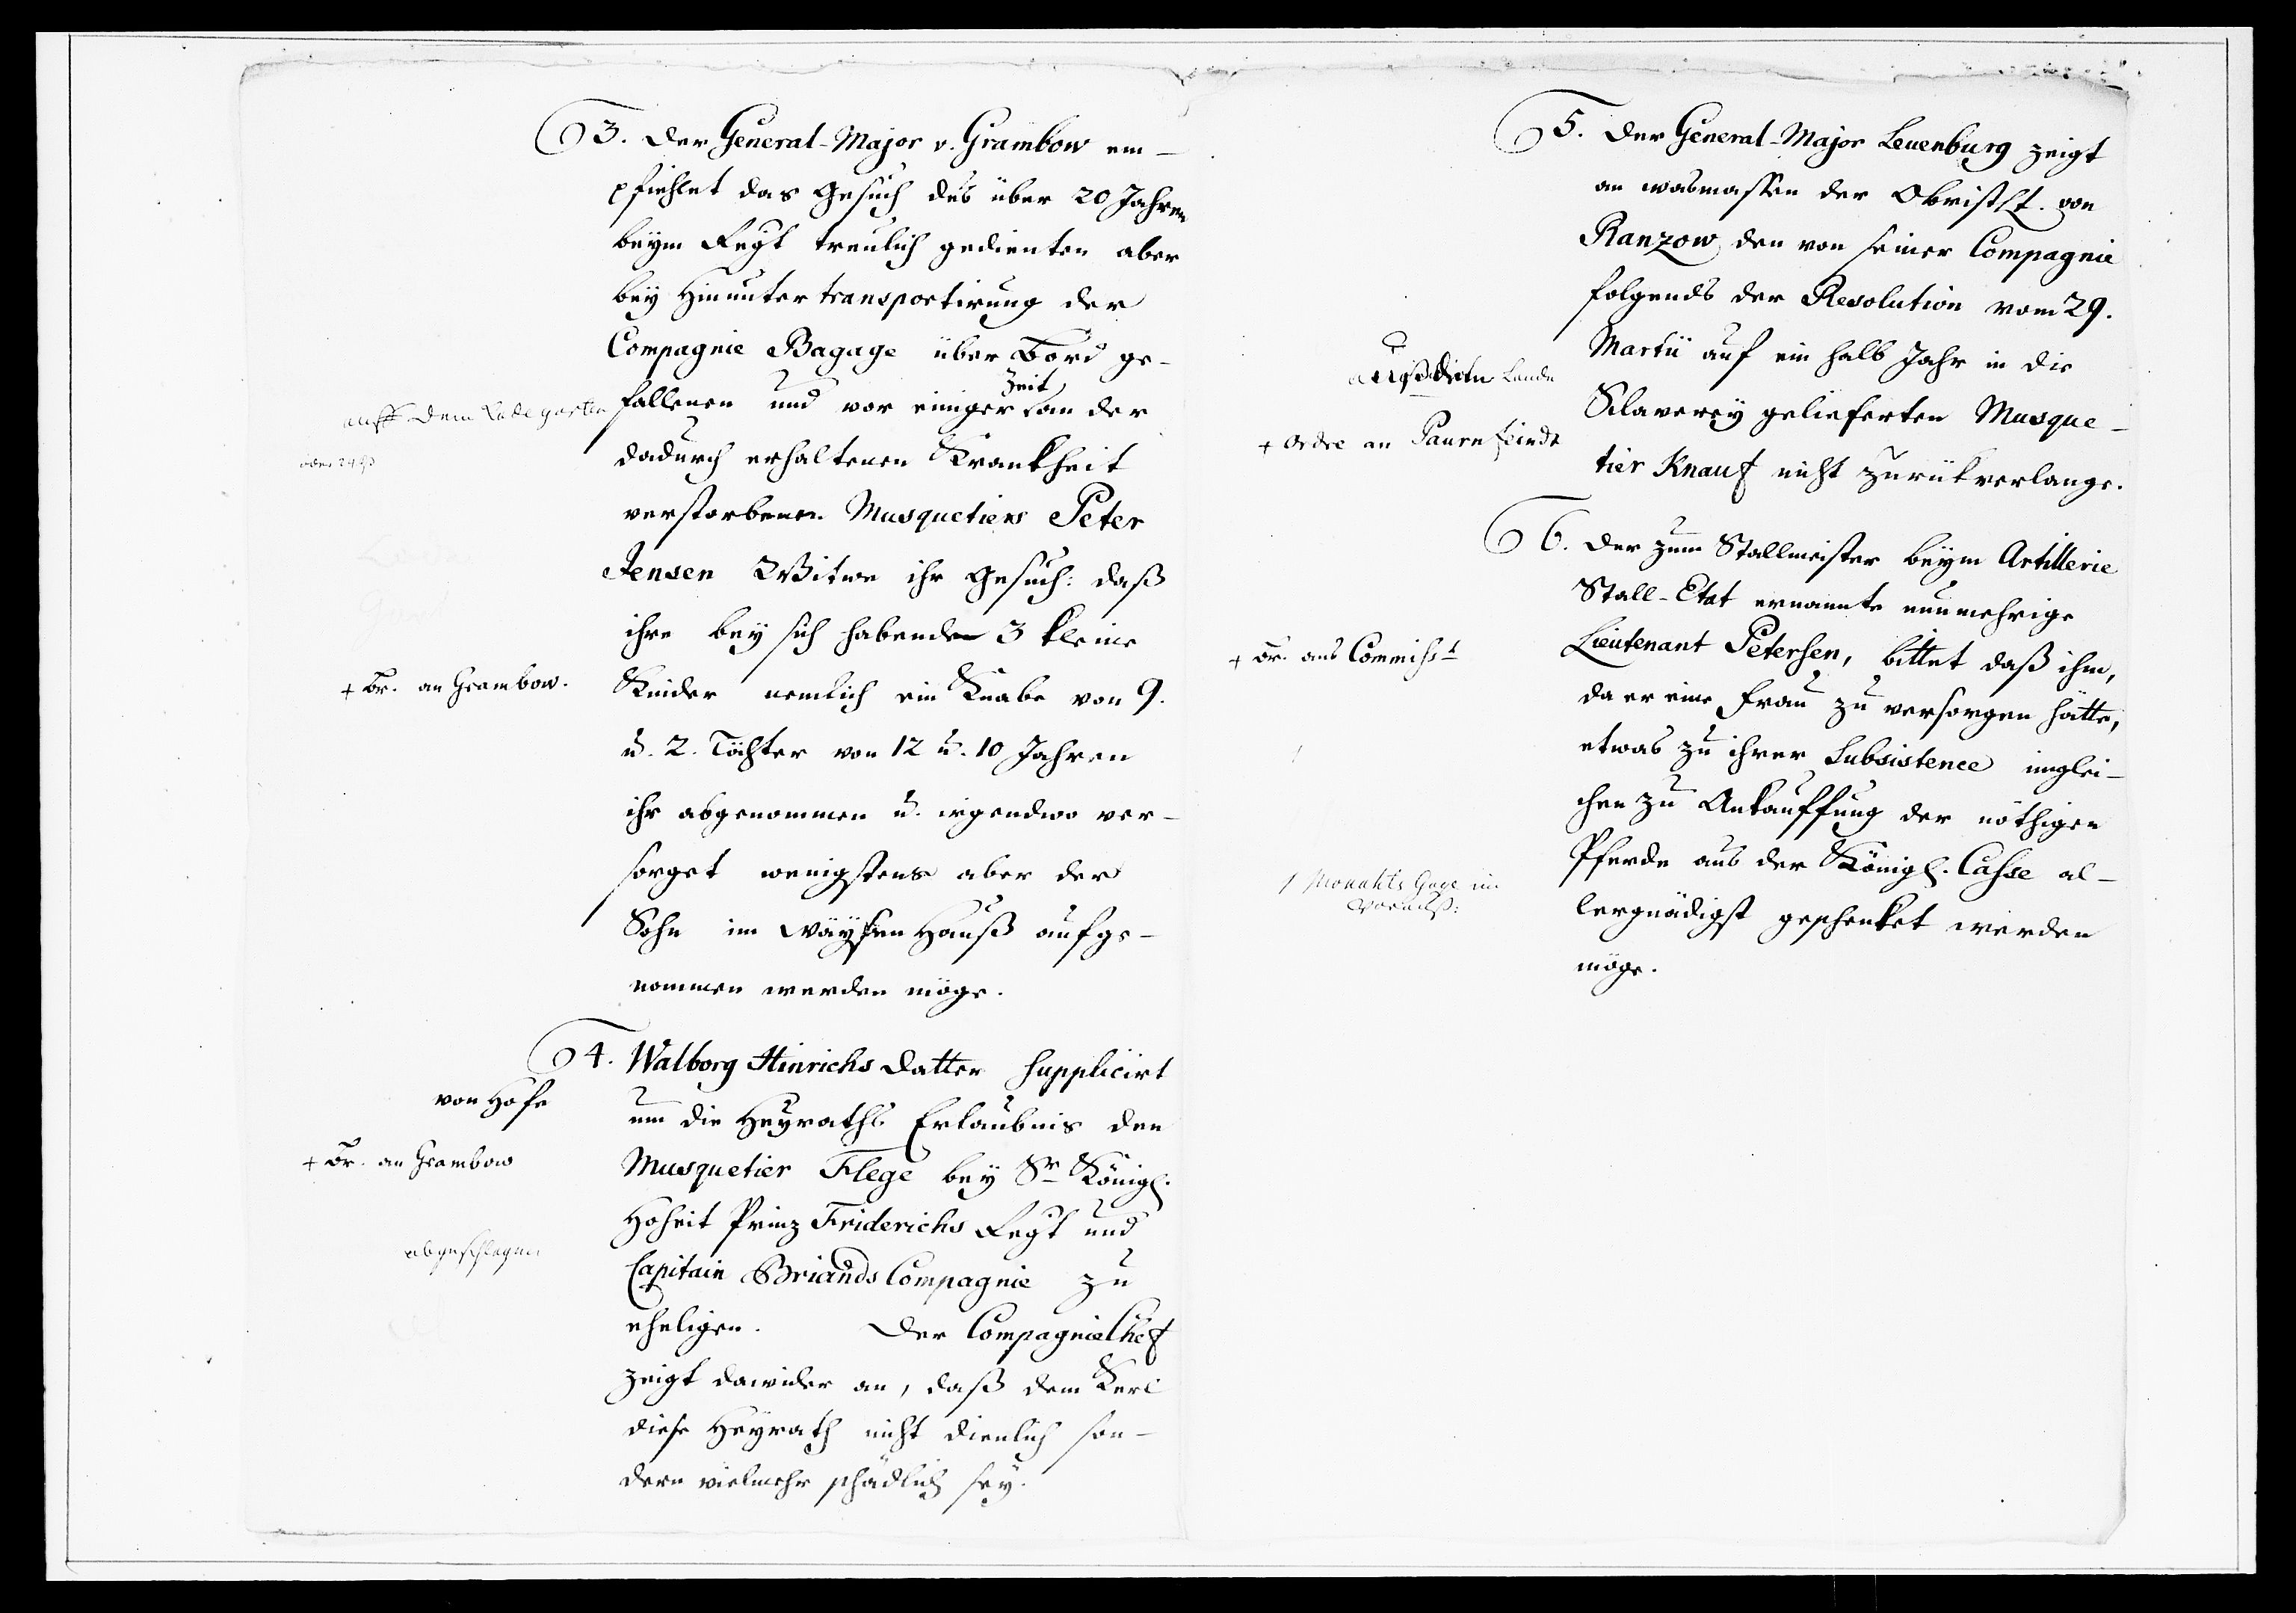 3. Der General-Major v. Grambow em-
pfiehlet das Gesuch des über 20 Jahren
beym Regt treulich gedienten aber
bey Hinunter transportirung der
Compagnie Bagage über Bord ge-
fallenen und vor einiger Zeit an der
dadurch erhaltenen Krankheit
verstorbenen Musquetiers Peter
Jensen Wittwe ihr Gesuch: daß
ihre bey sich habende 3 kleine
Kinder nemlich ein Knabe von 9.
u. 2. Töchter von 12 u. 10 Jahren
ihr abgenommen u. irgendwo ver-
sorget wenigstens aber der
Sohn im Wäysen Hauß aufge-
nommen werden möge.
auff dem
+ Br. an Grambow.
4. Walborg Hinrichs Datter supplicirt
um die Heyraths Erlaubnis den
Musquetier Flege bey Sr Königl.
Hoheit Prinz Friderichs Regt und
Capitain Briands Compagnie zu
eheligen. Der Compagnie Chef
zeigt dawider an, daß dem Kerl
diese Heyrath nicht dienlich son-
dern vielmehr schädlich sey.
von Hofe
+ Br. an Grambow
abgeschlagen
5. Der General-Major Leuenburg zeigt
an wasmassen der Obristlt. von
Ranzow den von seiner Compagnie
folgends der Resolution vom 29.
Martii auf ein halb Jahr in die
Sclaverey gelieferten Musque-
tier Knauf nicht zurükverlange.
auß dem Lande
+ Ordre an Paurnfeindt
6. Der zum Stallmeister beym Artillerie
Stall-Etat ernannte nunmehrige
Lieutenant Petersen, bittet daß ihm,
da er eine Frau zu versorgen hätte,
etwas zu ihrer Subsistence inglei-
chen zu Ankauffung der nöthigen
Pferde aus der Königl. Casse al-
lergnädigst geschenket werden
möge.
+ Br. ans Commisst
1 Monahts Gage im
Vorschuß: